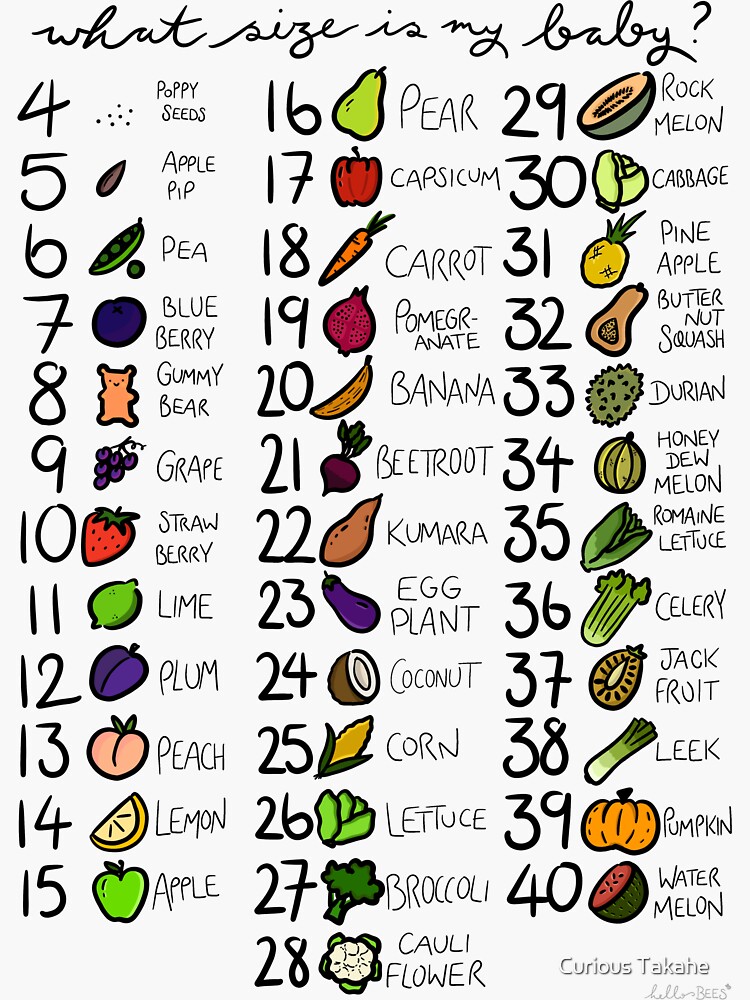 what size is my baby?
4 POPPY
SEEDS
5 APPLE
PIP
6 PEA
7 BLUE
BERRY
8 GUMMY
BEAR
9 GRAPE
10 STRAW
BERRY
11 LIME
12 PLUM
13 PEACH
14 LEMON
15 APPLE
16 PEAR
17 CAPSICUM
18 CARROT
19 POMEGR-
ANATE
20 BANANA
21 BEETROOT
22 KUMARA
23 EGG
PLANT
24 COCONUT
25 CORN
26 LETTUCE
27 BROCCOLI
28 CAULI
FLOWER
29 ROCK
MELON
30 CABBAGE
31 PINE
APPLE
32 BUTTER
NUT
SQUASH
33 DURIAN
34 HONEY
DEW
MELON
35 ROMAINE
LETTUCE
36 CELERY
37 JACK
FRUIT
38 LEEK
39 PUMPKIN
40 WATER
MELON
Curious Takahe
hello BEES